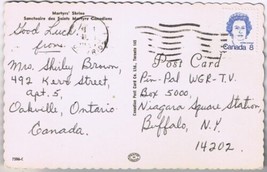 Martyrs' Shrine
Sanctuaire des Saints Martyrs Canadiens
Good Luck!
from:
Mrs. Shirley Brown,
492 Kerr Street,
apt. 5,
Oakville, Ontario
Canada.
7286-C
Canadian Post Card Co. Ltd., Toronto
Canada 8
Post Card
Pin-Pal WGR-T.V.
Box 5000,
Niagara Square Station,
Buffalo, N.Y.
14202.